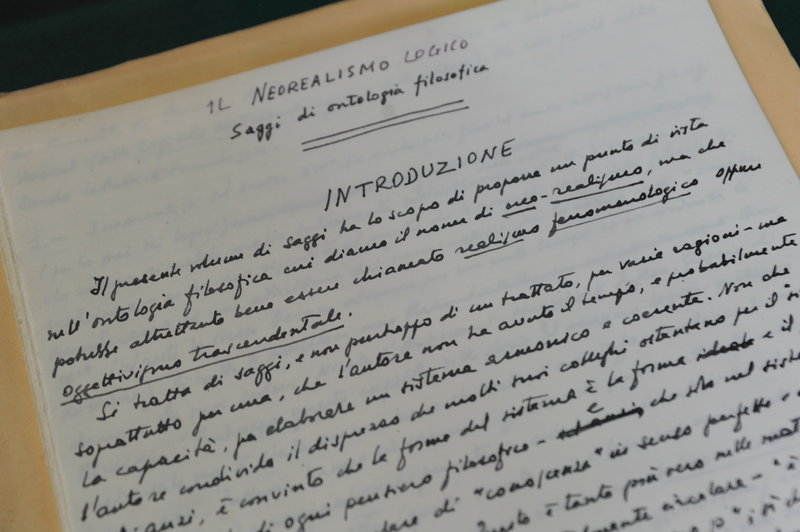 IL NEOREALISMO LOGICO
Saggi di ontologia filosofica
INTRODUZIONE
Il presente volume di saggi ha lo scopo di proporre un punto di vista
nell'ontologia filosofica cui diamo il nome di neo-realismo, ma che
potrebbe altrettanto bene essere chiamato realismo fenomenologico oppure
oggettivismo trascendentale.
Si tratta di saggi, e non purtroppo di un trattato, per varie ragioni - ma
soprattutto per una, che l'autore non ha avuto il tempo, e probabilmente
la capacità, per elaborare un sistema armonico e coerente. Non che
l'autore condivida il disprezzo che molti suoi colleghi ostentano per il "si
anzi, è convinto che la forma del sistema è la forma ideale e il
di ogni pensiero filosofico - che solo nel siste
di "conoscenza" in senso perfetto e
è tanto più vero nelle mat
circolare - "è